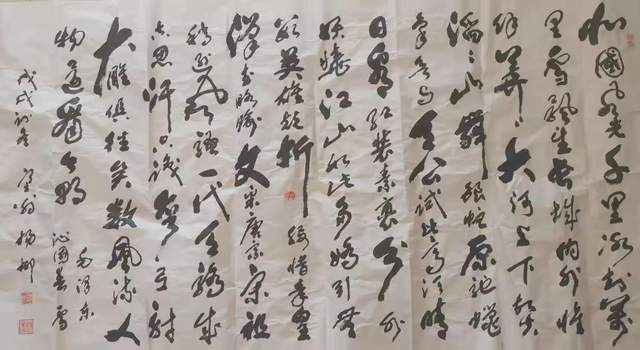 北國風光千里冰封萬
里雪飄望長城內外惟
餘莽莽大河上下頓失
滔滔山舞銀蛇原馳蠟
象欲与天公試比高須晴
日看紅裝素裹分外
妖嬈江山如此多嬌引無
數英雄競折腰惜秦皇
漢武略輸文采唐宗宋祖
稍遜風騷一代天驕成
吉思汗只識彎弓射
大雕俱往矣數風流人
物還看今朝
毛澤東
沁園春雪
戊戌